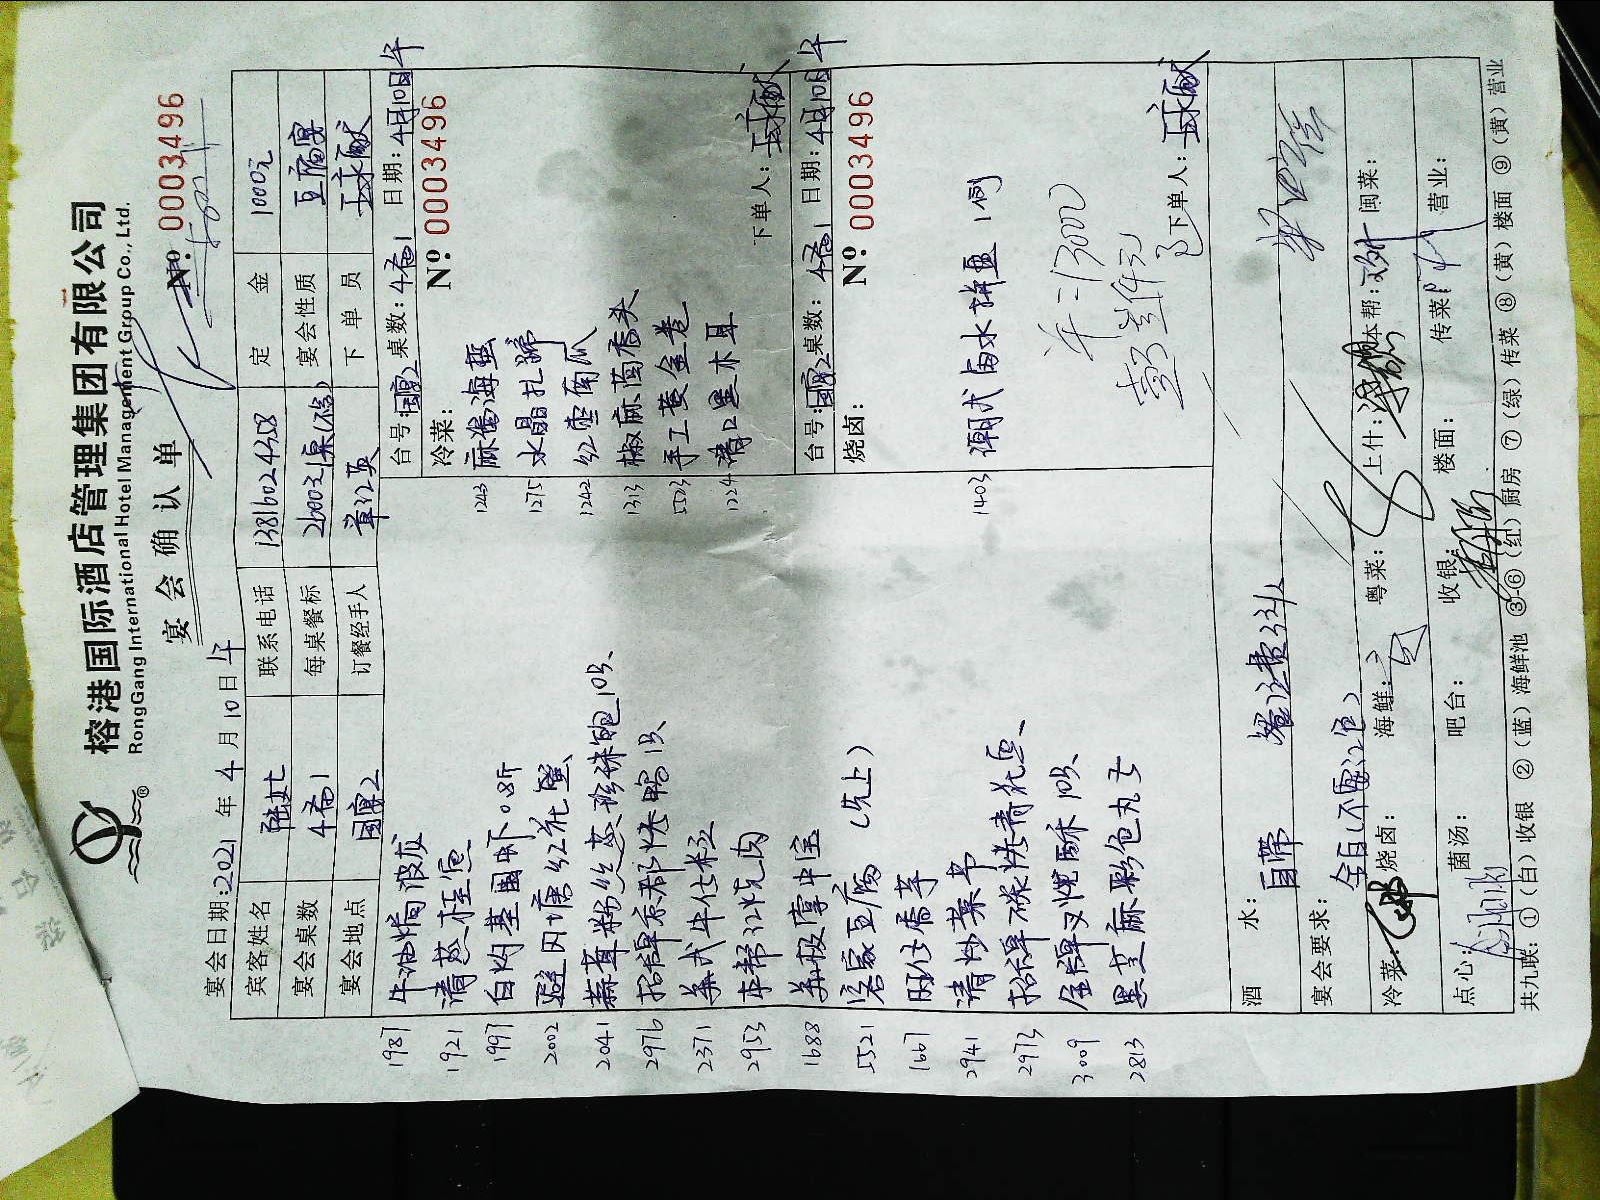 榕港国际酒店管理集团有限公司
RongGang International Hotel Management Group Co., Ltd.
宴会确认单
Nº 0003496
宴会日期:2021年4月10日午
宾客姓名 陆女士 联系电话 13816024458 定金 1000元
宴会桌数 4备1 每桌餐标 2600元/桌 宴会性质 豆腐宴
宴会地点 国宴2 订餐经手人 章红英 下单员
1987 牛油焗波龙
1921 清蒸
1997 白灼基围虾0.8斤
2002 避风塘红花蟹
2041 蒜茸粉丝蒸珍珠鲍10只
2976 招牌京都烤鸭1只
2371 美式牛仕粒
2953 本帮红烧肉
1688 美极掌中宝
5521 客家豆腐 (先上)
1667 旺仕香芋
2941 清炒菜苗
2973 招牌
3009 金牌叉烧酥10只
2813 黑芝麻彩色丸子
台号:国宴2 桌数:4备1 日期:4月10日午
冷菜: Nº 0003496
1243 麻酱海蜇
1275 水晶扎蹄
1242 红枣南瓜
1313 椒麻菌菇头
5523 手工黄金卷
1224 清口黑木耳
下单人:
台号:国宴2 桌数:4备1 日期:4月10日午
烧卤: Nº 0003496
1403 潮式卤水拼盘1例
下单人:
酒水: 自带
宴会要求:
冷菜: 烧卤: 海鲜: 粤菜: 上什: 本帮: 闽菜:
点心: 菌汤: 吧台: 收银: 楼面: 传菜: 营业:
共九联: ①(白)收银 ②(蓝)海鲜池 ③-⑥(红)厨房 ⑦(绿)传菜 ⑧(黄)楼面 ⑨(黄)营业